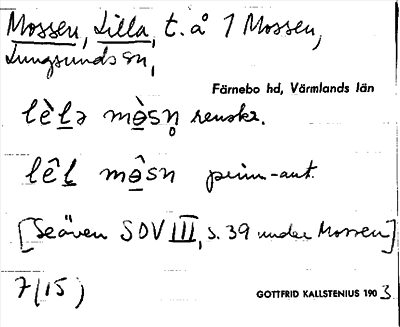 Mossen, Lilla, t. å 1 Mossen,
Lungsunds sn,
Färnebo hd, Värmlands län
lèlə mòsn̥ renskr.
lêl môsn prim.-ant.
[Se även SOV III, s. 39 under Mossen]
7/15)
GOTTFRID KALLSTENIUS 1903